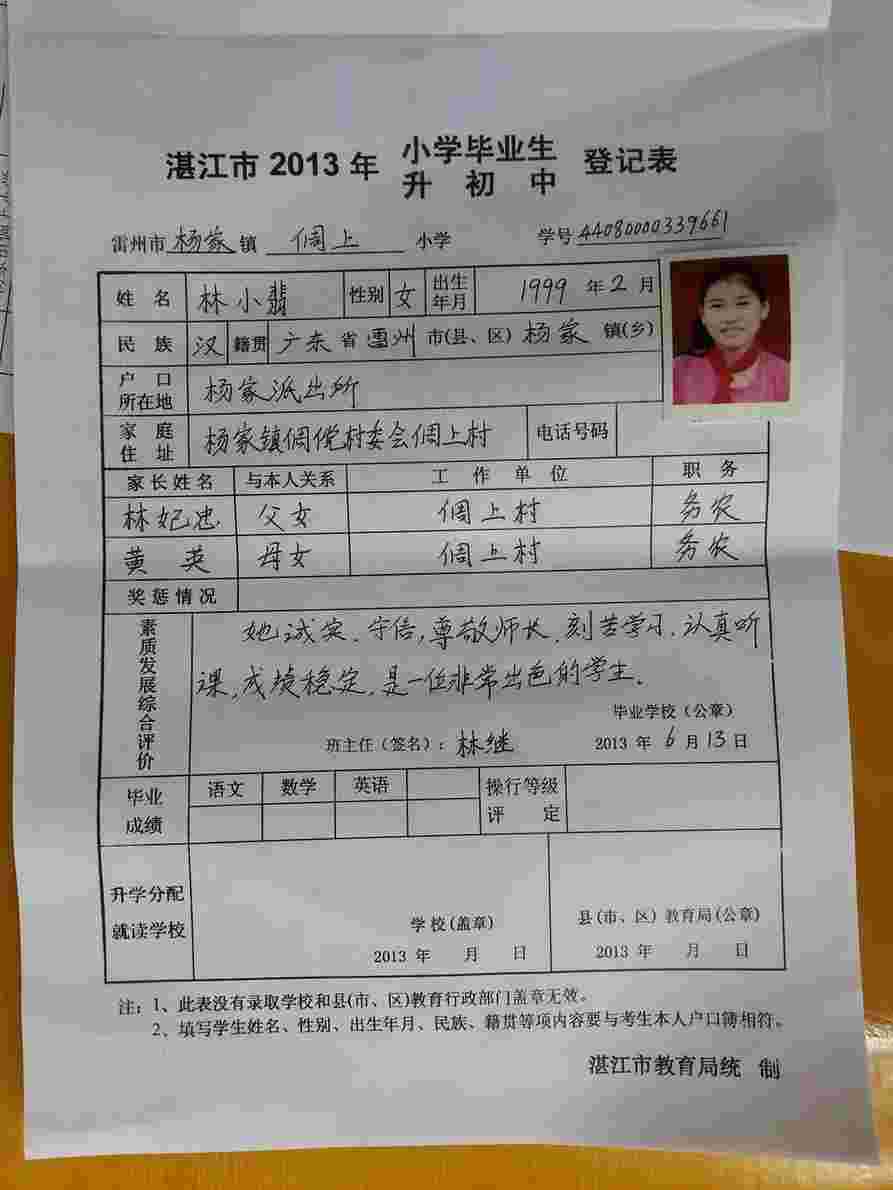 湛江市 2013 年 小学毕业生 升初中 登记表
雷州市 杨家 镇 倜上 小学 学号 44080000339661
姓名 林小翡 性别 女 出生年月 1999 年 2 月
民族 汉 籍贯 广东 省 雷州 市(县、区) 杨家 镇(乡)
户口所在地 杨家派出所
家庭住址 杨家镇倜党村委会倜上村 电话号码
家长姓名 与本人关系 工作单位 职务
林妃忠 父女 倜上村 务农
黄英 母女 倜上村 务农
奖惩情况
素质发展综合评价
她诚实、守信,尊敬师长,刻苦学习,认真听
课,成绩稳定,是一位非常出色的学生.
毕业学校(公章)
班主任(签名): 林继 2013 年 6 月 13 日
毕业成绩 语文 数学 英语 操行等级评定
升学分配就读学校
学校(盖章) 县(市、区)教育局(公章)
2013 年 月 日 2013 年 月 日
注:1、此表没有录取学校和县(市、区)教育行政部门盖章无效。
2、填写学生姓名、性别、出生年月、民族、籍贯等项内容要与考生本人户口簿相符。
湛江市教育局统 制